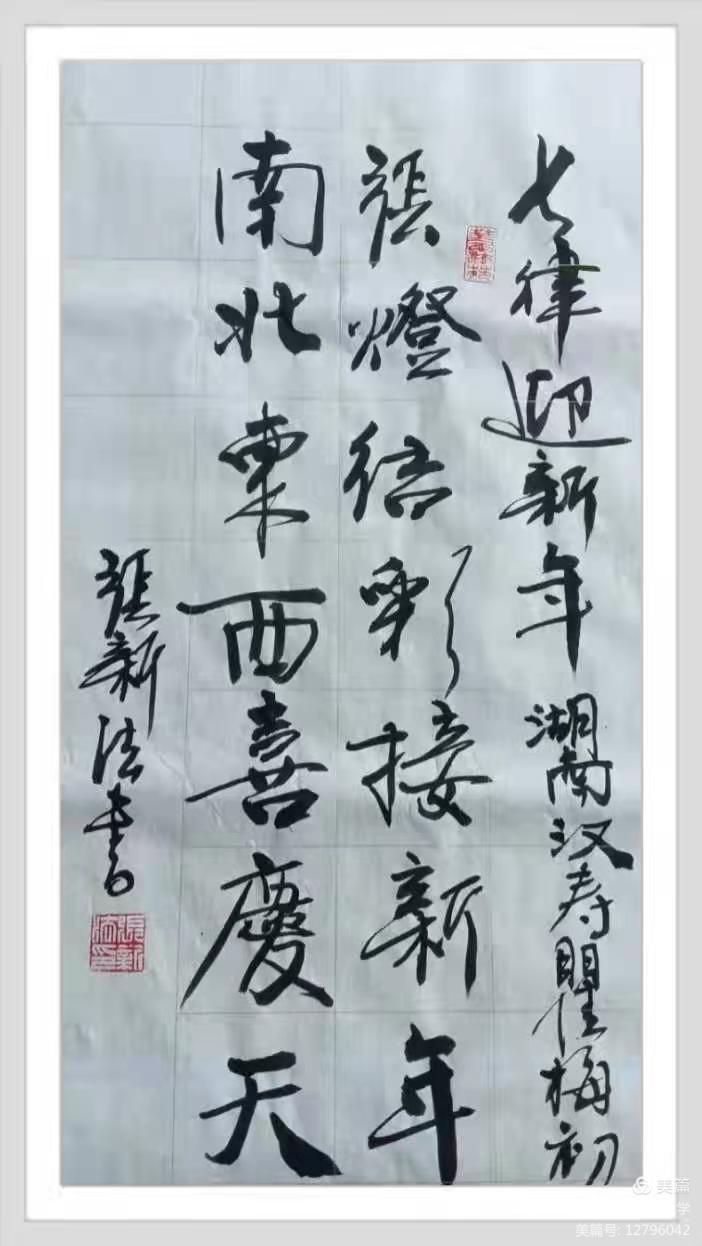 七律迎新年 湖南汉寿瞿梅初
張燈结彩接新年
南北東西喜慶天
張新法書
張新法印
美篇
美篇号: 12796042